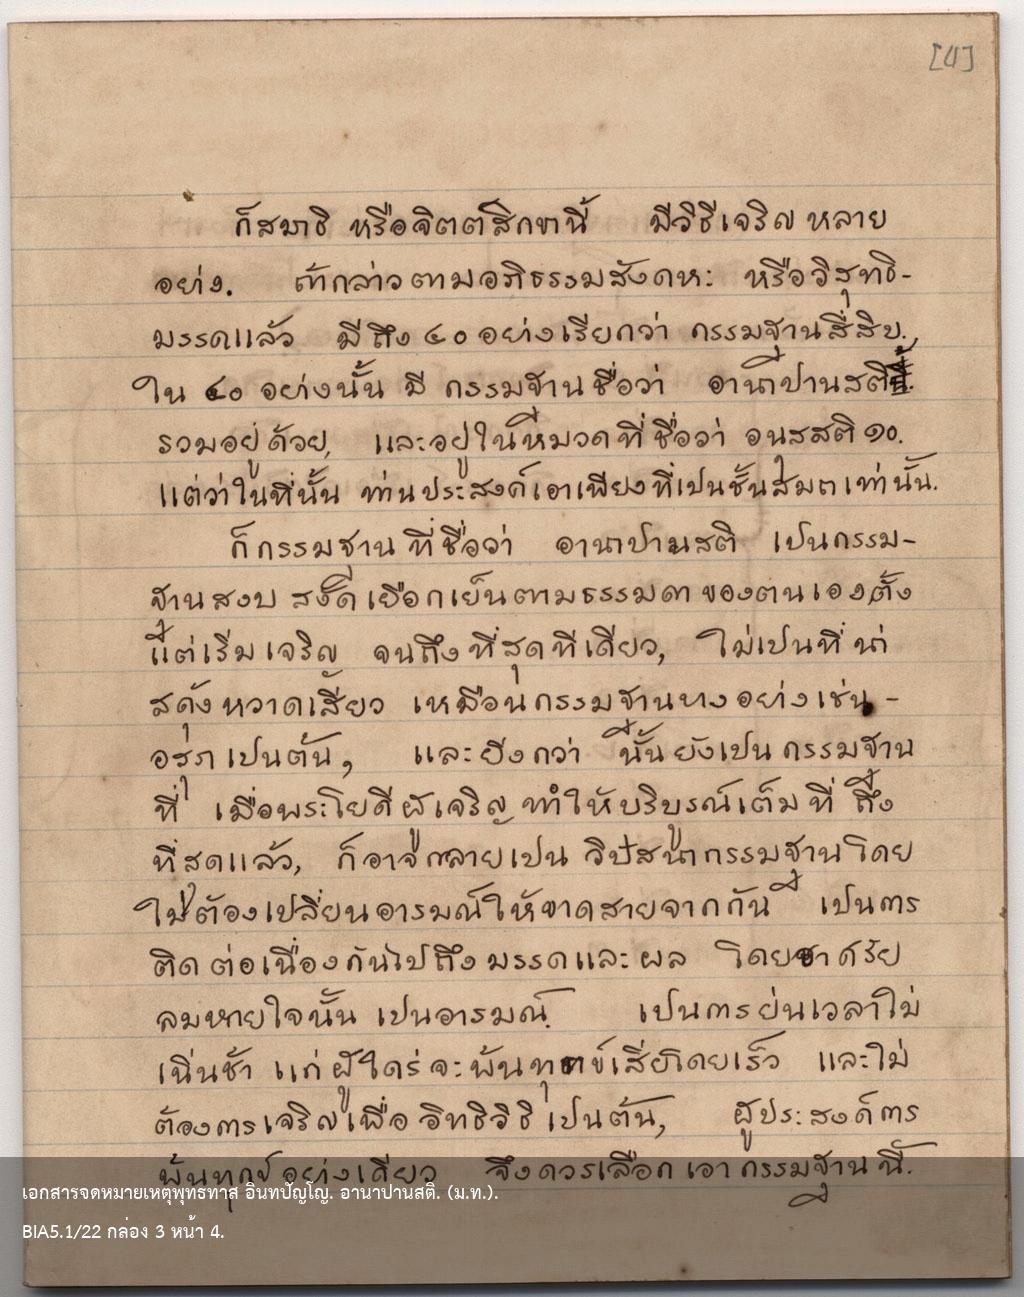 [4]
ก็สมาธิ หรือจิตตสิกขานี้ มีวิธีเจริญ หลาย
อย่าง. ถ้ากล่าวตามอภิธรรมสังคหะ หรือวิสุทธิ-
มรรคแล้ว มีถึง ๔๐ อย่างเรียกว่า กรรมฐานสี่สิบ.
ใน ๔๐ อย่างนั้น มี กรรมฐาน ชื่อว่า อานาปานสติ
รวมอยู่ด้วย, และอยู่ในหมวดที่ชื่อว่า อนุสสติ ๑๐.
แต่ว่าในที่นั้น ท่านประสงค์เอาเพียงที่เป็นชั้นสมถเท่านั้น.
ก็กรรมฐานที่ชื่อว่า อานาปานสติ เป็นกรรม-
ฐานสงบ สงัด เยือกเย็นตามธรรมดาของตนเอง ตั้ง
แต่เริ่มเจริญ จนถึงที่สุดทีเดียว, ไม่เป็นที่น่า
สดุ้งหวาดเสียว เหมือนกรรมฐานบางอย่างเช่น -
อสุภ เป็นต้น, และยิ่งกว่า นั้นยังเป็น กรรมฐาน
ที่ เมื่อพระโยคีผู้เจริญ ทำให้บริบูรณ์เต็มที่ ถึง
ที่สุดแล้ว, ก็อาจกลายเป็น วิปัสสนากรรมฐานโดย
ไม่ต้องเปลี่ยนอารมณ์ให้ขาดสายจากกัน เป็นการ
ติดต่อเนื่องกันไปถึงมรรคและผล โดยอาศรัย
ลมหายใจนั้น เป็นอารมณ์. เป็นการย่นเวลาไม่
เนิ่นช้า แก่ผู้ใคร่จะพ้นทุกข์เสียโดยเร็ว และไม่
ต้องการเจริญเพื่ออิทธิวิธิเป็นต้น, ผู้ประสงค์การ
พ้นทุกข์อย่างเดียว จึงควรเลือกเอากรรมฐานนี้.
เอกสารจดหมายเหตุพุทธทาส อินทปัญโญ. อานาปานสติ. (ม.ท.).
BIA5.1/22 กล่อง 3 หน้า 4.